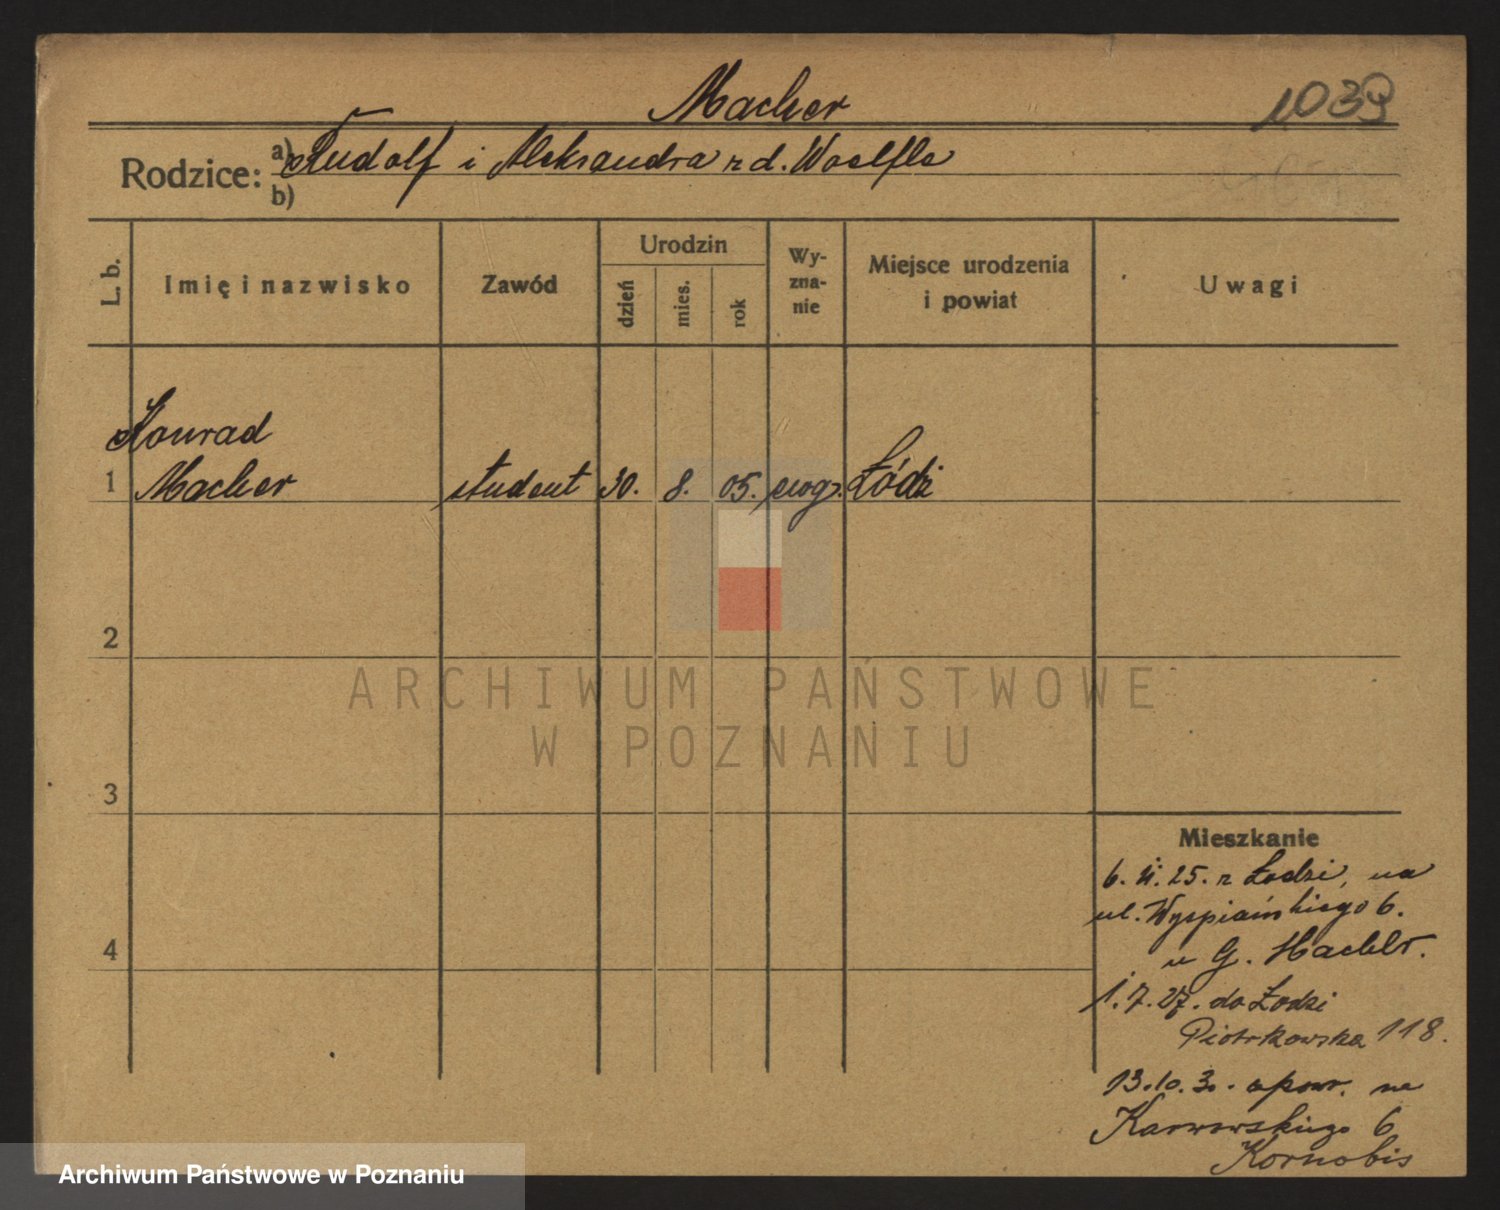 Macher
1039
Rodzice: a) Rudolf i Aleksandra z d. Woelfle
b)
L. b.
Imię i nazwisko
Zawód
Urodzin
dzień
mies.
rok
Wy-
zna-
nie
Miejsce urodzenia
i powiat
Uwagi
Konrad
1 Macher student 30. 8. 05. ewg. Łódź
2
3
4
ARCHIWUM PAŃSTWOWE
W POZNANIU
Mieszkanie
6. 25. z Łodzi, na
ul. Wyspiańskiego 6.
u G.
1.7.27. do Łodzi
Piotrkowska 118.
13.10.30. na
Karwowskiego 6
Kornobis
Archiwum Państwowe w Poznaniu